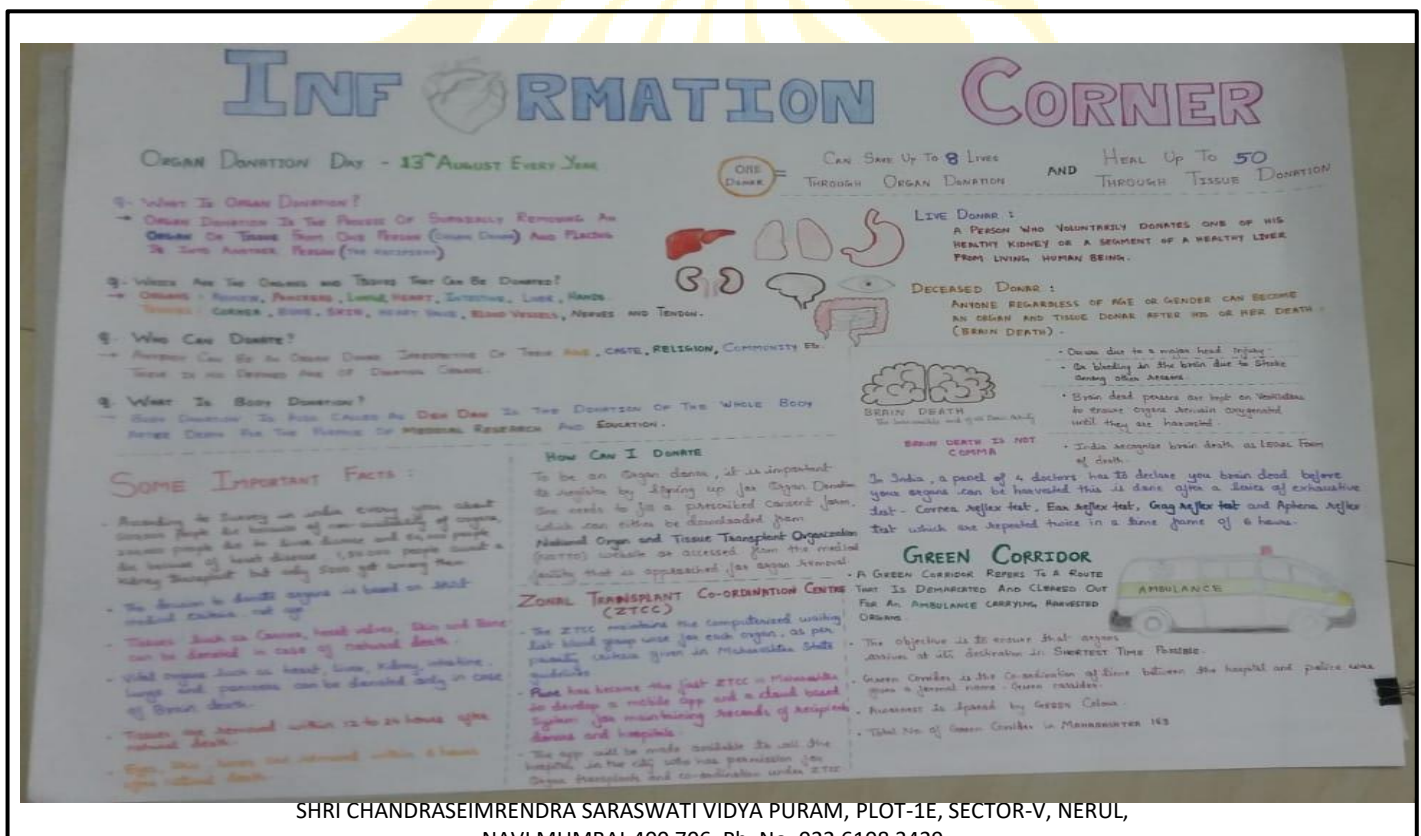 INFORMATION CORNER
ORGAN DONATION DAY - 13th AUGUST EVERY YEAR
ONE DONAR = CAN SAVE UP TO 8 LIVES THROUGH ORGAN DONATION AND HEAL UP TO 50 THROUGH TISSUE DONATION
Q- WHAT IS ORGAN DONATION?
→ ORGAN DONATION IS THE PROCESS OF SURGICALLY REMOVING AN
ORGAN OR TISSUE FROM ONE PERSON (ORGAN DONAR) AND PLACING
IT INTO ANOTHER PERSON (THE RECIPIENT)
Q- WHICH ARE THE ORGANS AND TISSUES THAT CAN BE DONATED?
→ ORGANS : KIDNEY, PANCREAS, LUNGS, HEART, INTESTINE, LIVER, HANDS.
TISSUES : CORNEA, BONE, SKIN, HEART VALVE, BLOOD VESSELS, NERVES AND TENDON.
Q. WHO CAN DONATE?
→ ANYBODY CAN BE AN ORGAN DONAR IRRESPECTIVE OF THEIR AGE, CASTE, RELIGION, COMMUNITY Etc.
THERE IS NO DEFINED AGE OF DONATING ORGANS.
Q. WHAT IS BODY DONATION?
→ BODY DONATION IS ALSO CALLED AS DEH DAN IS THE DONATION OF THE WHOLE BODY
AFTER DEATH FOR THE PURPOSE OF MEDICAL RESEARCH AND EDUCATION.
LIVE DONAR :
A PERSON WHO VOLUNTARILY DONATES ONE OF HIS
HEALTHY KIDNEY OR A SEGMENT OF A HEALTHY LIVER
FROM LIVING HUMAN BEING.
DECEASED DONAR :
ANYONE REGARDLESS OF AGE OR GENDER CAN BECOME
AN ORGAN AND TISSUE DONAR AFTER HIS OR HER DEATH.
(BRAIN DEATH).
BRAIN DEATH
BRAIN DEATH IS NOT
COMMA
- Occurs due to a major head injury
- Or bleeding in the brain due to stroke
among other reasons.
• Brain dead persons are kept on Ventilators
to ensure organs remain oxygenated
until they are harvested.
• India recognise brain death as LEGAL Form
of death.
In India, a panel of 4 doctors has to declare you brain dead before
your organs can be harvested this is done after a series of exhaustive
test - Cornea reflex test, Ear reflex test, Gag reflex test and reflex
test which are repeated twice in a time frame of 6 hours.
SOME IMPORTANT FACTS :
- According to Survey in India every year about
people die because of non-availability of organs
people die to liver disease and 50,000 people
die because of heart disease 1,50,000 people await a
kidney transplant but only 5000 get among them
- The decision to donate organs is based on strict
medical criteria not age
- Tissues such as Cornea, heart valves, Skin and Bone
can be donated in case of natural death.
- Vital organs such as heart, liver, kidney, intestine,
lungs and pancreas can be donated only in case
of Brain death.
- Tissues are removed within 12 to 24 hours after
natural death.
- Eyes, Skin, bones are removed within 6 hours
after natural death.
HOW CAN I DONATE
To be an organ donar, it is important
to register by signing up for Organ Donation
One needs to fill a prescribed consent form,
which can either be downloaded from
National Organ and Tissue Transplant Organization
(NOTTO) website or accessed from the medical
facility that is approached for organ removal.
ZONAL TRANSPLANT CO-ORDINATION CENTRE
(ZTCC)
- The ZTCC maintains the computerized waiting
list blood group wise for each organ, as per
priority criteria given in Maharashtra State
guidelines
- Pune has become the first ZTCC in Maharashtra
to develop a mobile app and a cloud based
system for maintaining records of recipients
donors and hospitals.
- The app will be made available to all the
hospitals in the city who has permission for
Organ transplants and co-ordination under ZTCC
GREEN CORRIDOR
• A GREEN CORRIDOR REFERS TO A ROUTE
THAT IS DEMARCATED AND CLEARED OUT
FOR AN AMBULANCE CARRYING HARVESTED
ORGANS.
AMBULANCE
- The objective is to ensure that organs
arrives at its destination in SHORTEST TIME POSSIBLE.
- Green Corridor is the Co-ordination of time between the hospital and police
given a formal name - Green corridor.
- Awareness is Spread by GREEN Colour.
- Total No. of Green Corridor in MAHARASHTRA 163
SHRI CHANDRASEIMRENDRA SARASWATI VIDYA PURAM, PLOT-1E, SECTOR-V, NERUL,